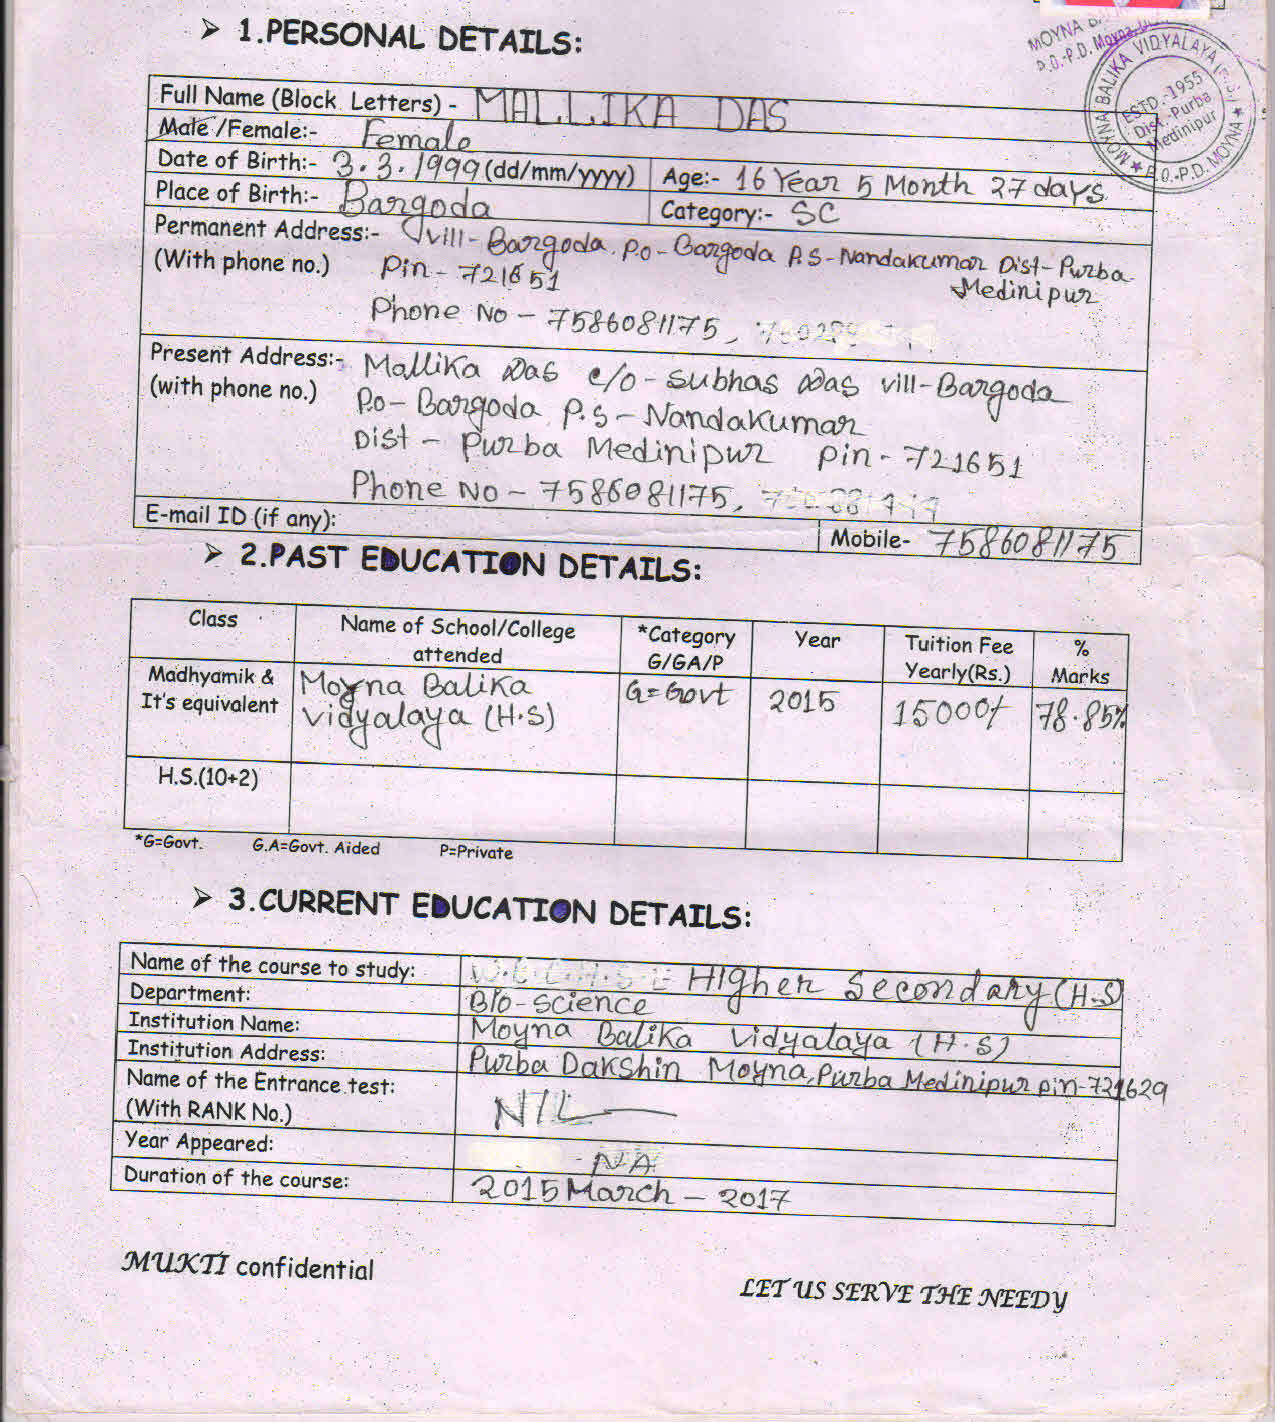 MOYNA
P.O.-P.D. Moyna,
MOYNA BALIKA VIDYALAYA (H.S)
ESTD.-1955
Dist.-Purba
Medinipur
P.O.-P.D. MOYNA
➢ 1.PERSONAL DETAILS:
Full Name (Block Letters) - MALLIKA DAS
Male /Female:- Female
Date of Birth:- 3.3.1999 (dd/mm/yyyy) Age:- 16 Year 5 Month 27 days.
Place of Birth:- Bargoda Category:- SC
Permanent Address:- vill- Bargoda. P.o- Bargoda P.S-Nandakumar Dist- Purba
(With phone no.) Pin- 721651 Medinipur
Phone No - 7586081175,
Present Address:- Mallika Das c/o- Subhas Das vill-Bargoda
(with phone no.) P.o- Bargoda P.S-Nandakumar
Dist - Purba Medinipur pin- 721651
Phone No - 7586081175,
E-mail ID (if any): Mobile- 7586081175
➢ 2.PAST EDUCATION DETAILS:
Class Name of School/College attended *Category G/GA/P Year Tuition Fee Yearly(Rs.) % Marks
Madhyamik & Moyna Balika G=Govt 2015 15000/- 78.85%
It's equivalent Vidyalaya (H.S)
H.S.(10+2)
*G=Govt. G.A=Govt. Aided P=Private
➢ 3.CURRENT EDUCATION DETAILS:
Name of the course to study: Higher Secondary (H.S)
Department: Bio-science
Institution Name: Moyna Balika Vidyalaya (H.S)
Institution Address: Purba Dakshin Moyna, Purba Medinipur pin-721629
Name of the Entrance test:
(With RANK No.) NIL
Year Appeared: - NA
Duration of the course: 2015 March - 2017
MUKTI confidential
LET US SERVE THE NEEDY